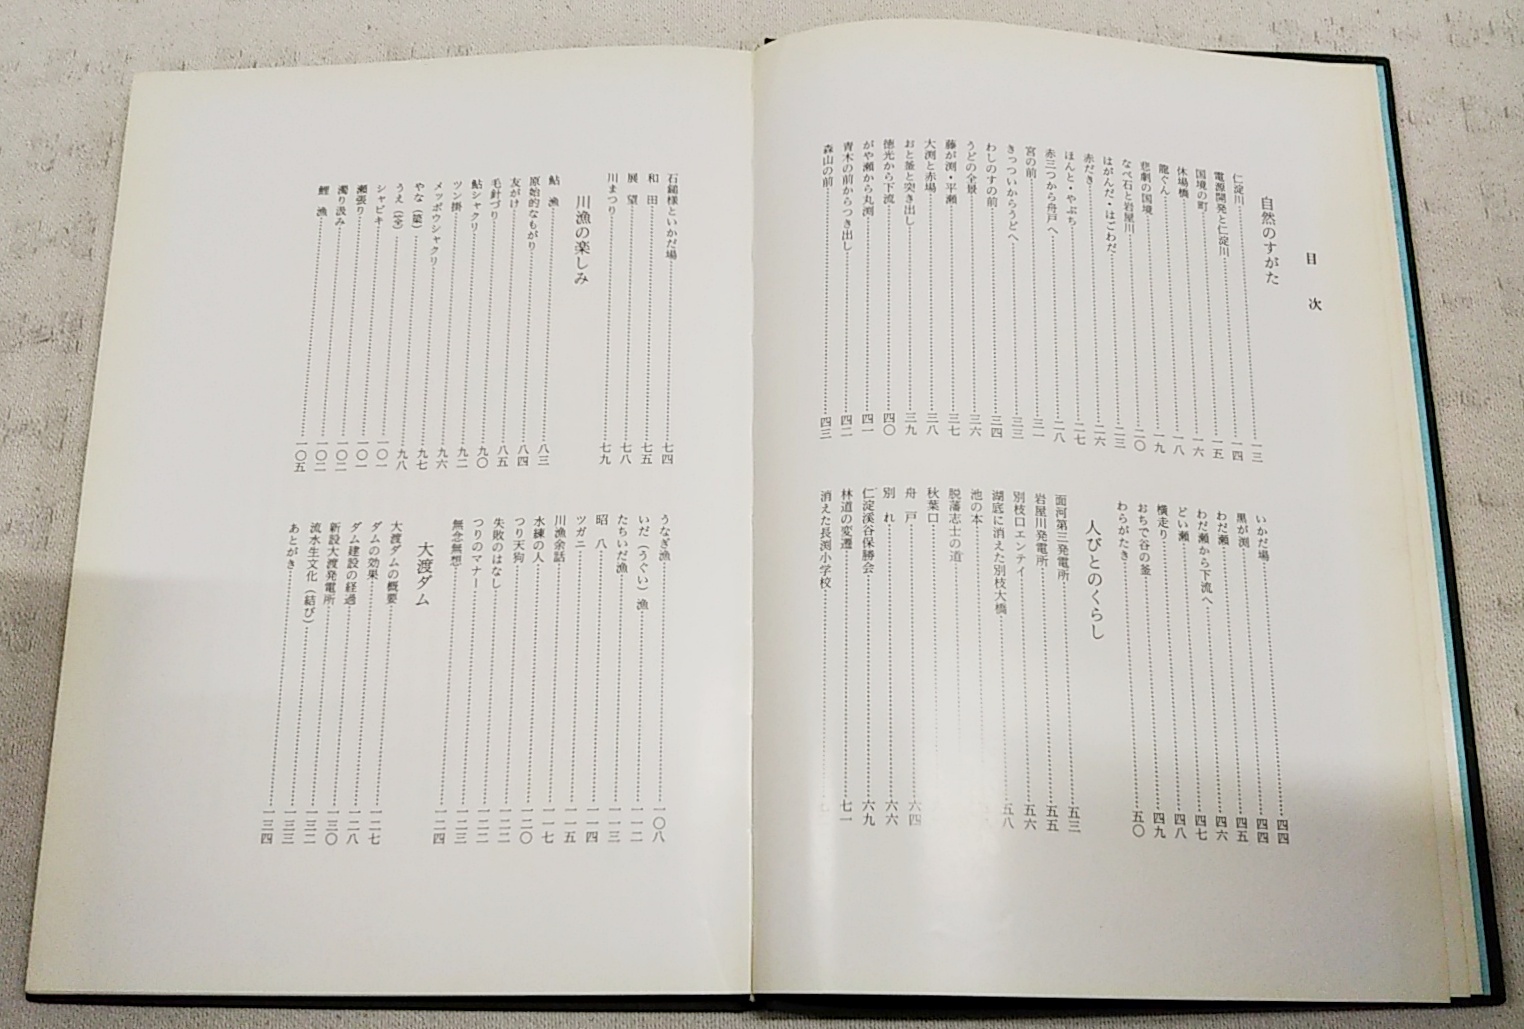 目次
自然のすがた
仁淀川……一三
電源開発と仁淀川……一四
国境の町……一五
休場橋……一六
龍ぐん……一八
悲劇の国境……一九
なべ石と岩屋川……二〇
はがんだ・はごわだ……二三
赤だき……二六
ほんと・やぶち……二七
赤三つから舟戸へ……二八
宮の前……三一
きっついからうどへ……三三
わしのすの前……三四
うどの全景……三六
藤が渕・平瀬……三七
大渕と赤場……三八
おと釜と突き出し……三九
徳光から下流……四〇
がや瀬から丸渕……四一
青木の前からつき出し……四二
森山の前……四三
いかだ場……四四
黒が渕……四四
わだ瀬……四五
わだ瀬から下流へ……四六
どい瀬……四七
横走り……四八
おちで谷の釜……四九
わらがたき……五〇
人びとのくらし
面河第三発電所……五三
岩屋川発電所……五五
別枝口エンテイ……五六
湖底に消えた別枝大橋……五八
池の本
脱藩志士の道
秋葉口
舟戸……六四
別れ……六六
仁淀渓谷保勝会……六九
林道の変遷……七一
消えた長渕小学校
石鎚様といかだ場……七四
和田……七五
展望……七八
川まつり……七九
川漁の楽しみ
鮎漁……八三
原始的なもがり……八四
友がけ……八五
毛針づり……九〇
鮎シャクリ……九二
ツン掛……九六
メッポウシャクリ……九七
やな(簗)……九八
うえ(筌)……一〇一
シャビキ……一〇一
瀬張り……一〇二
濁り汲み……一〇二
鯉漁……一〇五
うなぎ漁……一〇八
いだ(うぐい)漁……一一二
たちいだ漁……一一三
昭八……一一四
ツガニ……一一五
川漁余話……一一七
水練の人……一二〇
つり天狗……一二二
失敗のはなし……一二二
つりのマナー……一二三
無念無想……一二四
大渡ダム
大渡ダムの概要……一二七
ダムの効果……一二八
ダム建設の経過……一三〇
新設大渡発電所……一三二
流水生文化(結び)……一三三
あとがき……一三四